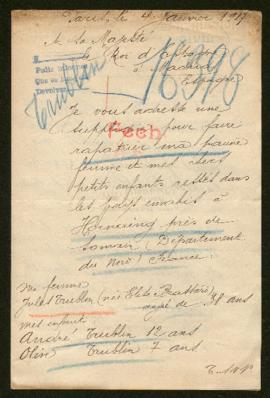 Paris, le 4 Janvier 1917
A Sa Majesté
le Roi d'Espagne
à Madrid
Espagne
16398
Trublin
Je vous adresse une
supplique pour faire
Fech
rapatrier ma pauvre
femme et mes chers
petits enfants restés dans
les pays envahis à
Hornaing près de
Somain (Département
du Nord) France.
Ma femme
Jules Trublin (née Elise
âgée de 38 ans
mes enfants
André Trublin 12 ans
Trublin 7 ans
T.S.V.P